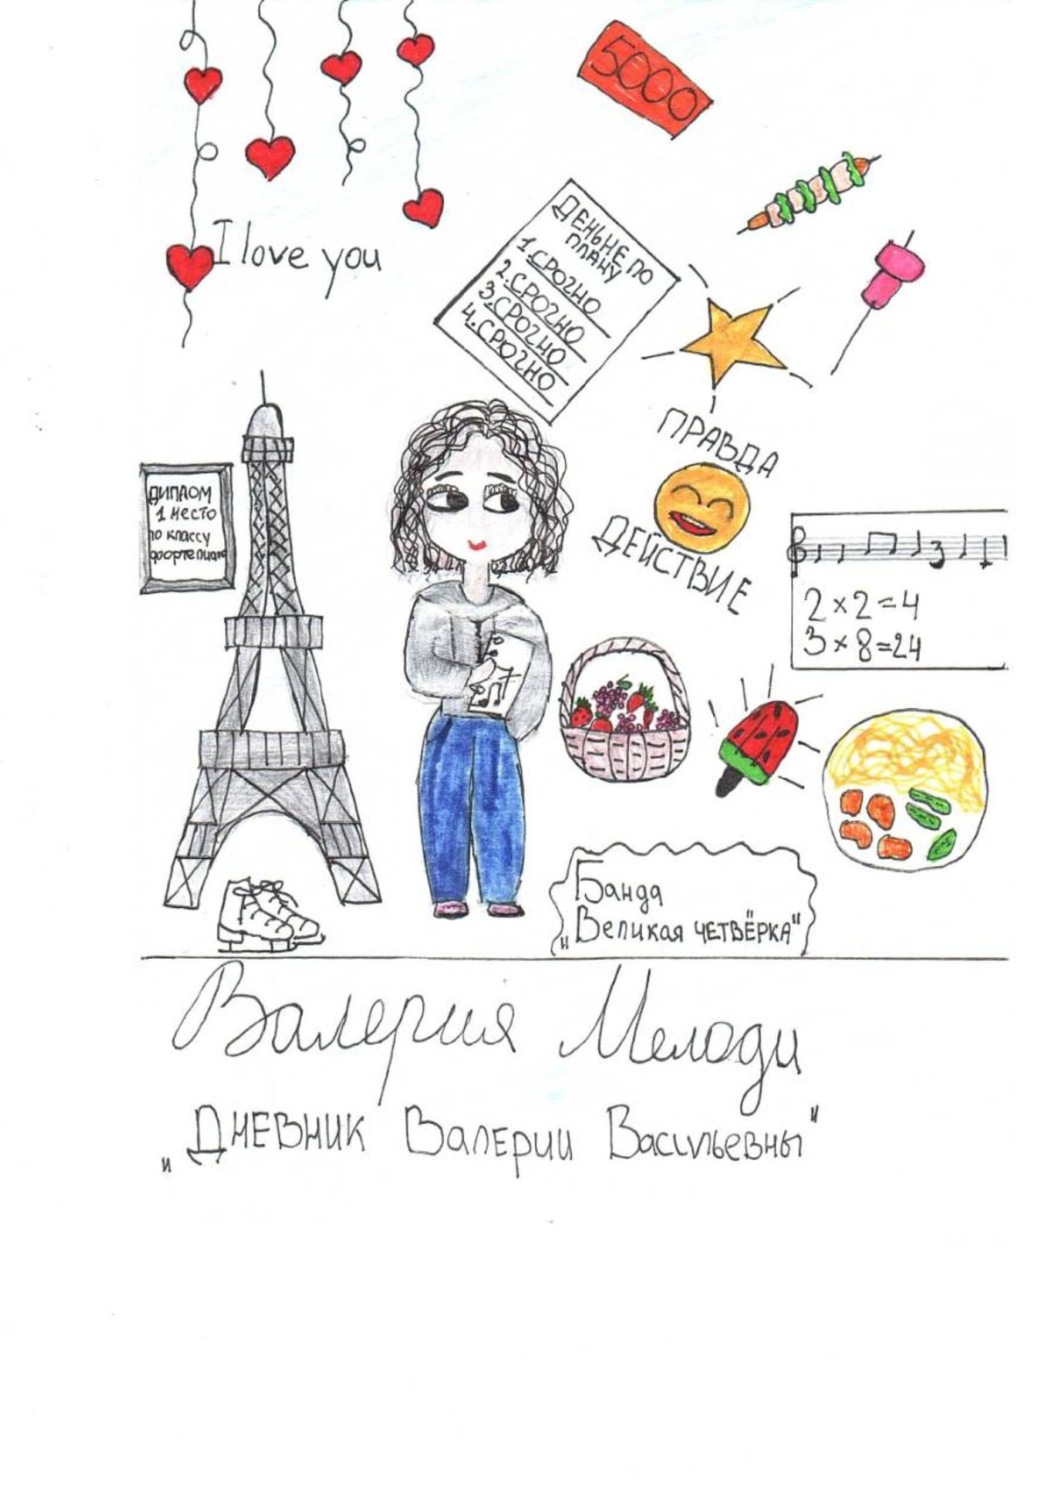 5000
I love you
ДЕНЬ НЕ ПО
ПЛАНУ
1. СРОЧНО
2. СРОЧНО
3. СРОЧНО
4. СРОЧНО
ПРАВДА
ДЕЙСТВИЕ
ДИПЛОМ
1 место
по классу
фортепиано
2×2=4
3×8=24
Банда
"Великая ЧЕТВЁРКА"
Валерия Мелоди
"Дневник Валерии Васильевны"